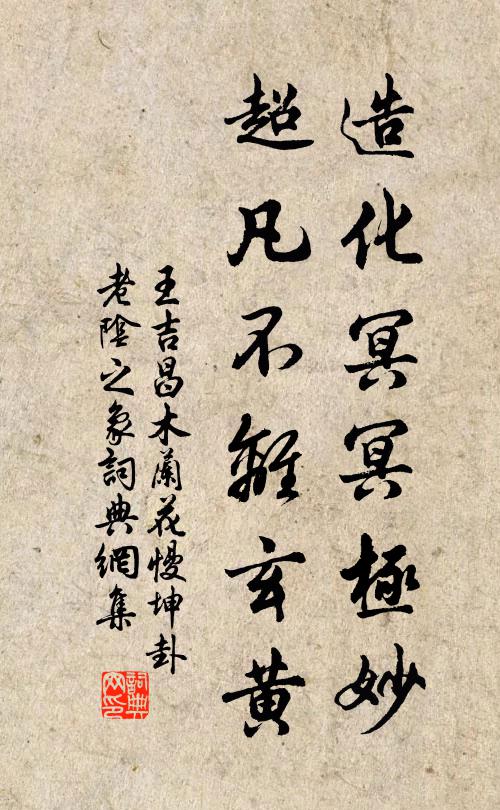 造化冥冥極妙
超凡不離玄黃
王吉昌木蘭花慢坤卦
老陰之象詞典網集
詞典
网印